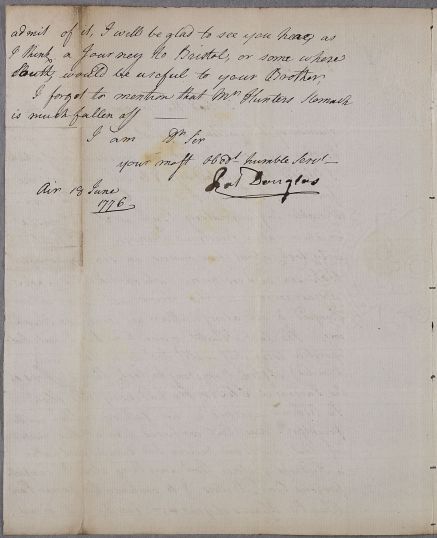 admit of it, I will be glad to see you here, as
I think a Journey to Bristol, or some where
South, would be useful to your Brother,
I forgot to mention that Mr Hunters stomach
is much fallen off —
I am Dr Sir
your most obedt humble Servt
Pat Douglas
Air 13 June
1776